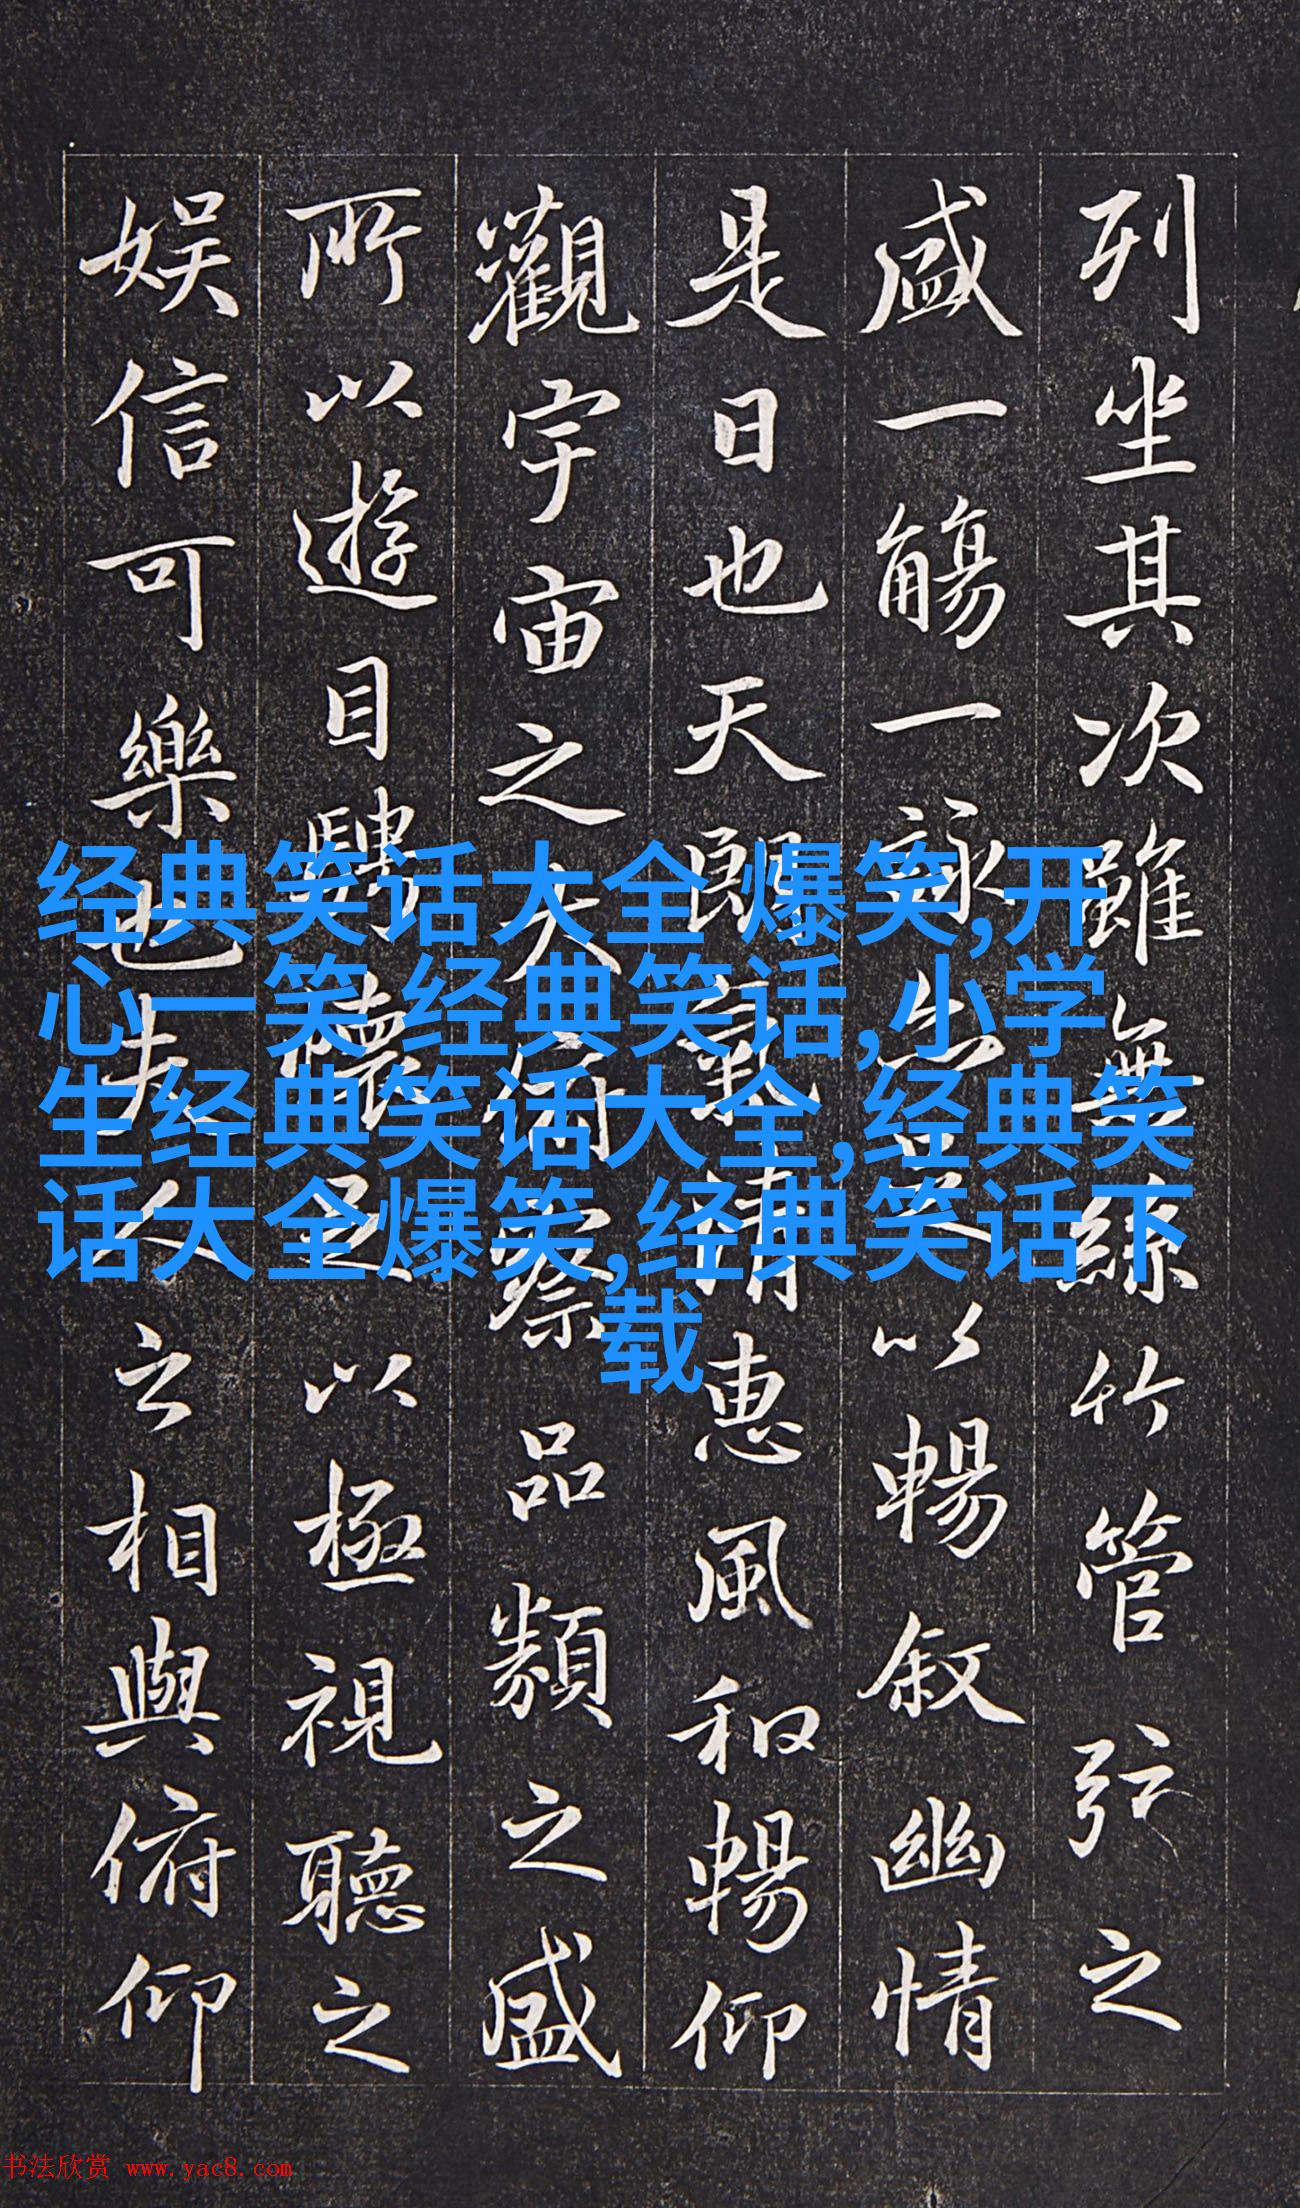 列坐其次雖無絲竹管弦之
盛一觴一詠亦足以暢敘幽情
是日也天朗氣清惠風和暢仰
觀宇宙之大俯察品類之盛
所以遊目騁懷足以極視聽之
娛信可樂也夫人之相與俯仰
经典笑话大全 爆笑,开
心一笑 经典笑话,小学
生经典笑话大全,经典笑
话大全爆笑,经典笑话下
载
书法欣赏 www.yac8.com